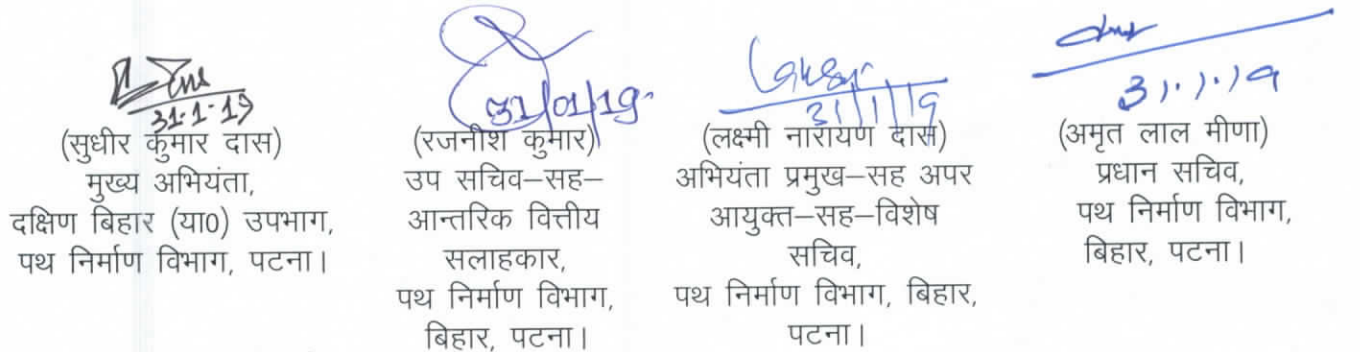 31.1.19
(सुधीर कुमार दास)
मुख्य अभियंता,
दक्षिण बिहार (या0) उपभाग,
पथ निर्माण विभाग, पटना।
31/01/19
(रजनीश कुमार)
उप सचिव–सह–
आन्तरिक वित्तीय
सलाहकार,
पथ निर्माण विभाग,
बिहार, पटना।
31/1/19
(लक्ष्मी नारायण दास)
अभियंता प्रमुख–सह अपर
आयुक्त–सह–विशेष
सचिव,
पथ निर्माण विभाग, बिहार,
पटना।
31.1.19
(अमृत लाल मीणा)
प्रधान सचिव,
पथ निर्माण विभाग,
बिहार, पटना।